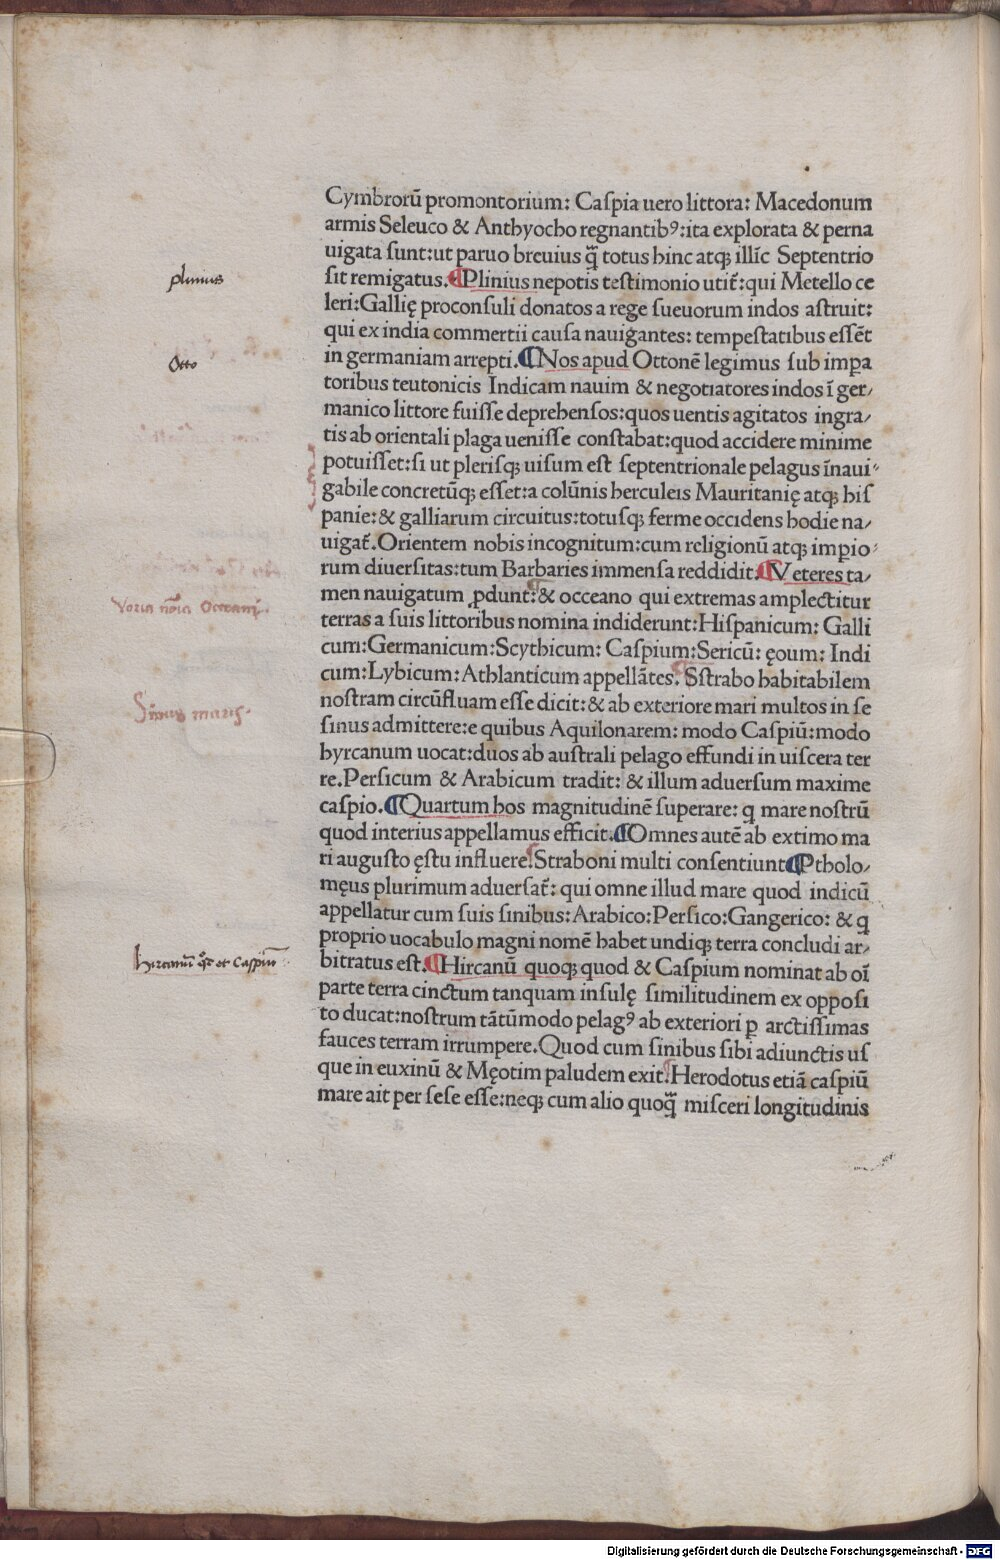 Cymbrorū promontorium: Caſpia uero littora: Macedonum
armis Seleuco & Anthyocho regnantibꝰ:ita explorata & perna
uigata ſunt:ut paruo breuius q̄̃ totus hinc atqꝫ illic̄ Septentrio
plinius
ſit remigatus.¶Plinius nepotis teſtimonio utit᷑:qui Metello ce
leri:Gallię proconſuli donatos a rege ſueuorum indos aſtruit:
qui ex india commertii cauſa nauigantes: tempeſtatibus eſſēt
Otto
in germaniam arrepti.¶Nos apud Ottonē legimus ſub imꝑa
toribus teutonicis Indicam nauim & negotiatores indos ī ger/
manico littore fuiſſe deprehenſos:quos uentis agitatos ingra/
tis ab orientali plaga ueniſſe conſtabat:quod accidere minime
potuiſſet:ſi ut pleriſqꝫ uiſum eſt ſeptentrionale pelagus īnaui-
gabile concretūqꝫ eſſet:a colūnis herculeis Mauritanię atqꝫ hiſ
panie:& galliarum circuitus:totuſqꝫ ferme occidens hodie na/
uigat᷑.Orientem nobis incognitum:cum religionū atqꝫ imꝑio-
rum diuerſitas:tum Barbaries immenſa reddidit.¶Veteres ta/
men nauigatum ꝓdunt:& occeano qui extremas amplectitur
Voria nōīa Occeani.
terras a ſuis littoribus nomina indiderunt:Hiſpanicum: Galli
cum:Germanicum:Scythicum: Caſpium:Sericū: ęoum: Indi
cum:Lybicum:Athlanticum appellātes. Sſtrabo habitabilem
noſtram circūfluam eſſe dicit:& ab exteriore mari multos in ſe
Sinus maris.
ſinus admittere:e quibus Aquilonarem: modo Caſpiū:modo
hyrcanum uocat:duos ab auſtrali pelago effundi in uiſcera ter
re.Perſicum & Arabicum tradit: & illum aduerſum maxime
caſpio.¶Quartum hos magnitudinē ſuperare: ꝙ mare noſtrū
quod interius appellamus efficit.¶Omnes autē ab extimo ma
ri auguſto ęſtu influere.Straboni multi conſentiunt¶Ptholo/
męus plurimum aduerſat᷑: qui omne illud mare quod indicū
appellatur cum ſuis ſinibus:Arabico:Perſico:Gangerico: & ꝙ
proprio uocabulo magni nomē habet undiqꝫ terra concludi ar/
Hircanū qđ et Caspiū
bitratus eſt.¶Hircanū quoqꝫ quod & Caſpium nominat ab oī
parte terra cinctum tanquam inſulę ſimilitudinem ex oppoſi
to ducat:noſtrum tātūmodo pelagꝰ ab exteriori ꝑ arctiſſimas
fauces terram irrumpere.Quod cum ſinibus ſibi adiunctis uſ
que in euxinū & Męotim paludem exit.Herodotus etiā caſpiū
mare ait per ſeſe eſſe:neqꝫ cum alio quoq̄̃ miſceri longitudinis
Digitalisierung gefördert durch die Deutsche Forschungsgemeinschaft - DFG